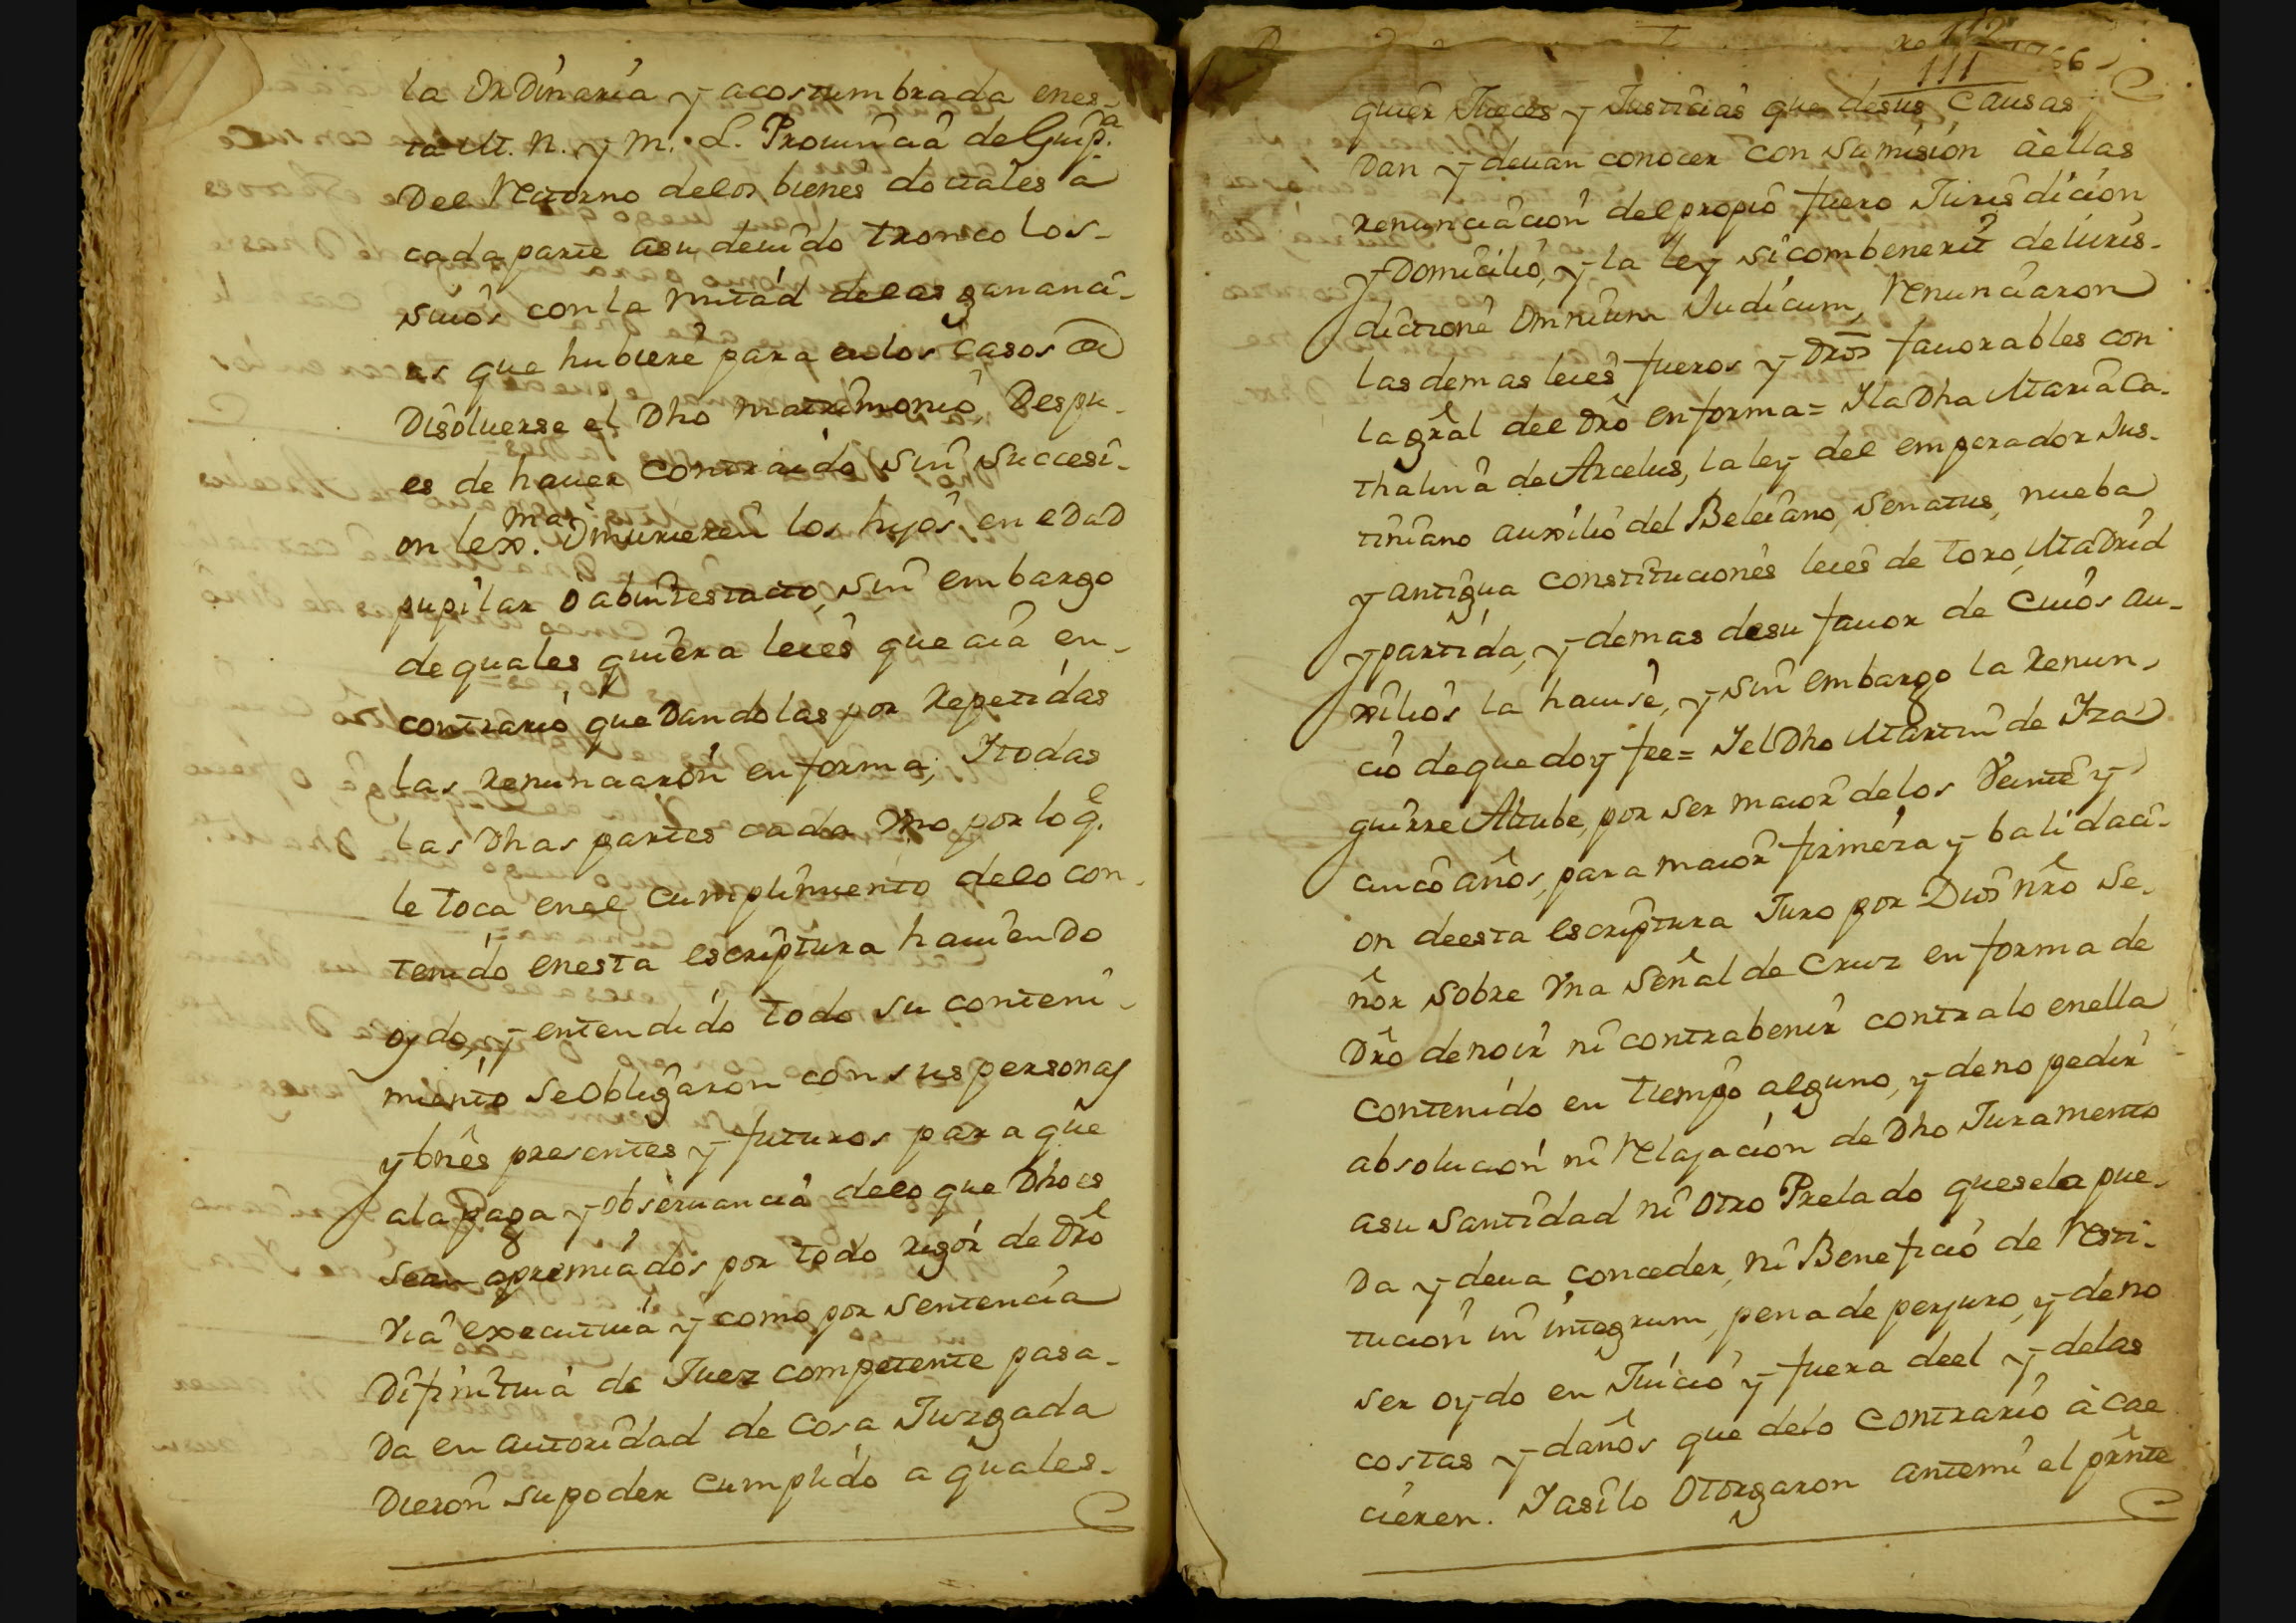 la Ordinaria y acostumbrada enes-
ta M. N. y M. L. Prouincia de Guip.a
Del Retorno delos bienes dotales a
cada parte asu deuido tronco los-
suios con la mitad delas gananci-
as que hubiere para enlos casos de
Disoluerse el Dho matrimonio Despu-
es de hauer contraido sin succesi-
on lex.ma O murieren los hijos en edad
pupilar o abintestato, sin embargo
de quales quiera leies que aia en
contrario que Dandolas por Repetidas
las Renunciaron en forma; Y todas
las Dhas partes cada Vno por lo q.e
le toca enel cumplimiento delo con-
tenido enesta escriptura hauiendo
oydo, y entendido todo su conteni-
miento se obligaron con sus personas
y bnês presentes y futuros para que
ala paga y obseruancia delo que Dho es
sean apremiados por todo rigor de Drô
Via executiua y como por sentencia
Difinitiua de Juez competente pasa-
Da en autoridad de cosa Juzgada
Dieron su poder cumplido a quales-
112
111
quier Jueces y Justicias que desus causas
Dan y deuan conocer con sumision à ellas
renunciacion del propio fuero Jurisdicion
y Domicilio, y la ley sicombenerit de Iuris-
dictione Omnium Iudicum, Renunciaron
las demas leies fueros y Drôs fauorables con
la grâl del Drô en forma = Y la Dha Maria Ca-
thalina de Arcelus, la ley del emperador Jus-
tiniano auxilio del Beleiano, Senatus, nueba
y antigua constituciones leies de toro, Madrid
y partida, y demas desu fauor de cuios au-
xilios la hauise, y sin embargo la Renun-
ció de que doy fee = Y el Dho Martin de Yza
guirre Altube, por ser maior delos Veinte y
cinco años, para maior firmeza y balidaci-
on deesta escriptura Juro por Dios nrô Se-
ñor sobre Vna señal de Cruz en forma de
Drô de no ir ni contrabenir contra lo enella
contenido en tiempo alguno, y de no pedir
absolucion ni Relajacion de Dho Juramento
asu santidad ni Otro Prelado quesela pue-
Da y deua conceder, ni Beneficio de Resti-
tucion in integrum, pena de perjuro, y de no
ser oydo en Juicio y fuera deel y delas
costas y daños que delo contrario à cae
cieren. Y asi lo Otorgaron antemi el prênte